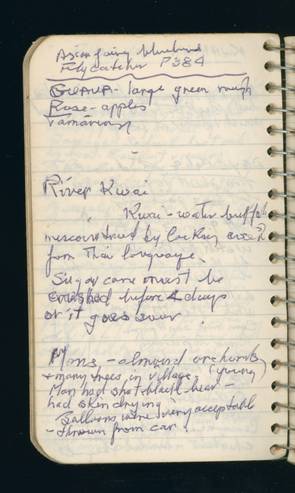 Asian fairy bluebird
Flycatcher P384
Guava - large green rough
Rose - apples
Tamarind
River Kwai
Kwai - water buffalo
misconstrued by
from Thai language.
Sugar cane must be
crushed before 4 days
or it goes sour.
PMs - almond orchards
+ many trees in village. (young
Man had shot black bear -
had skin drying
Balloons were very acceptable
- thrown from car.